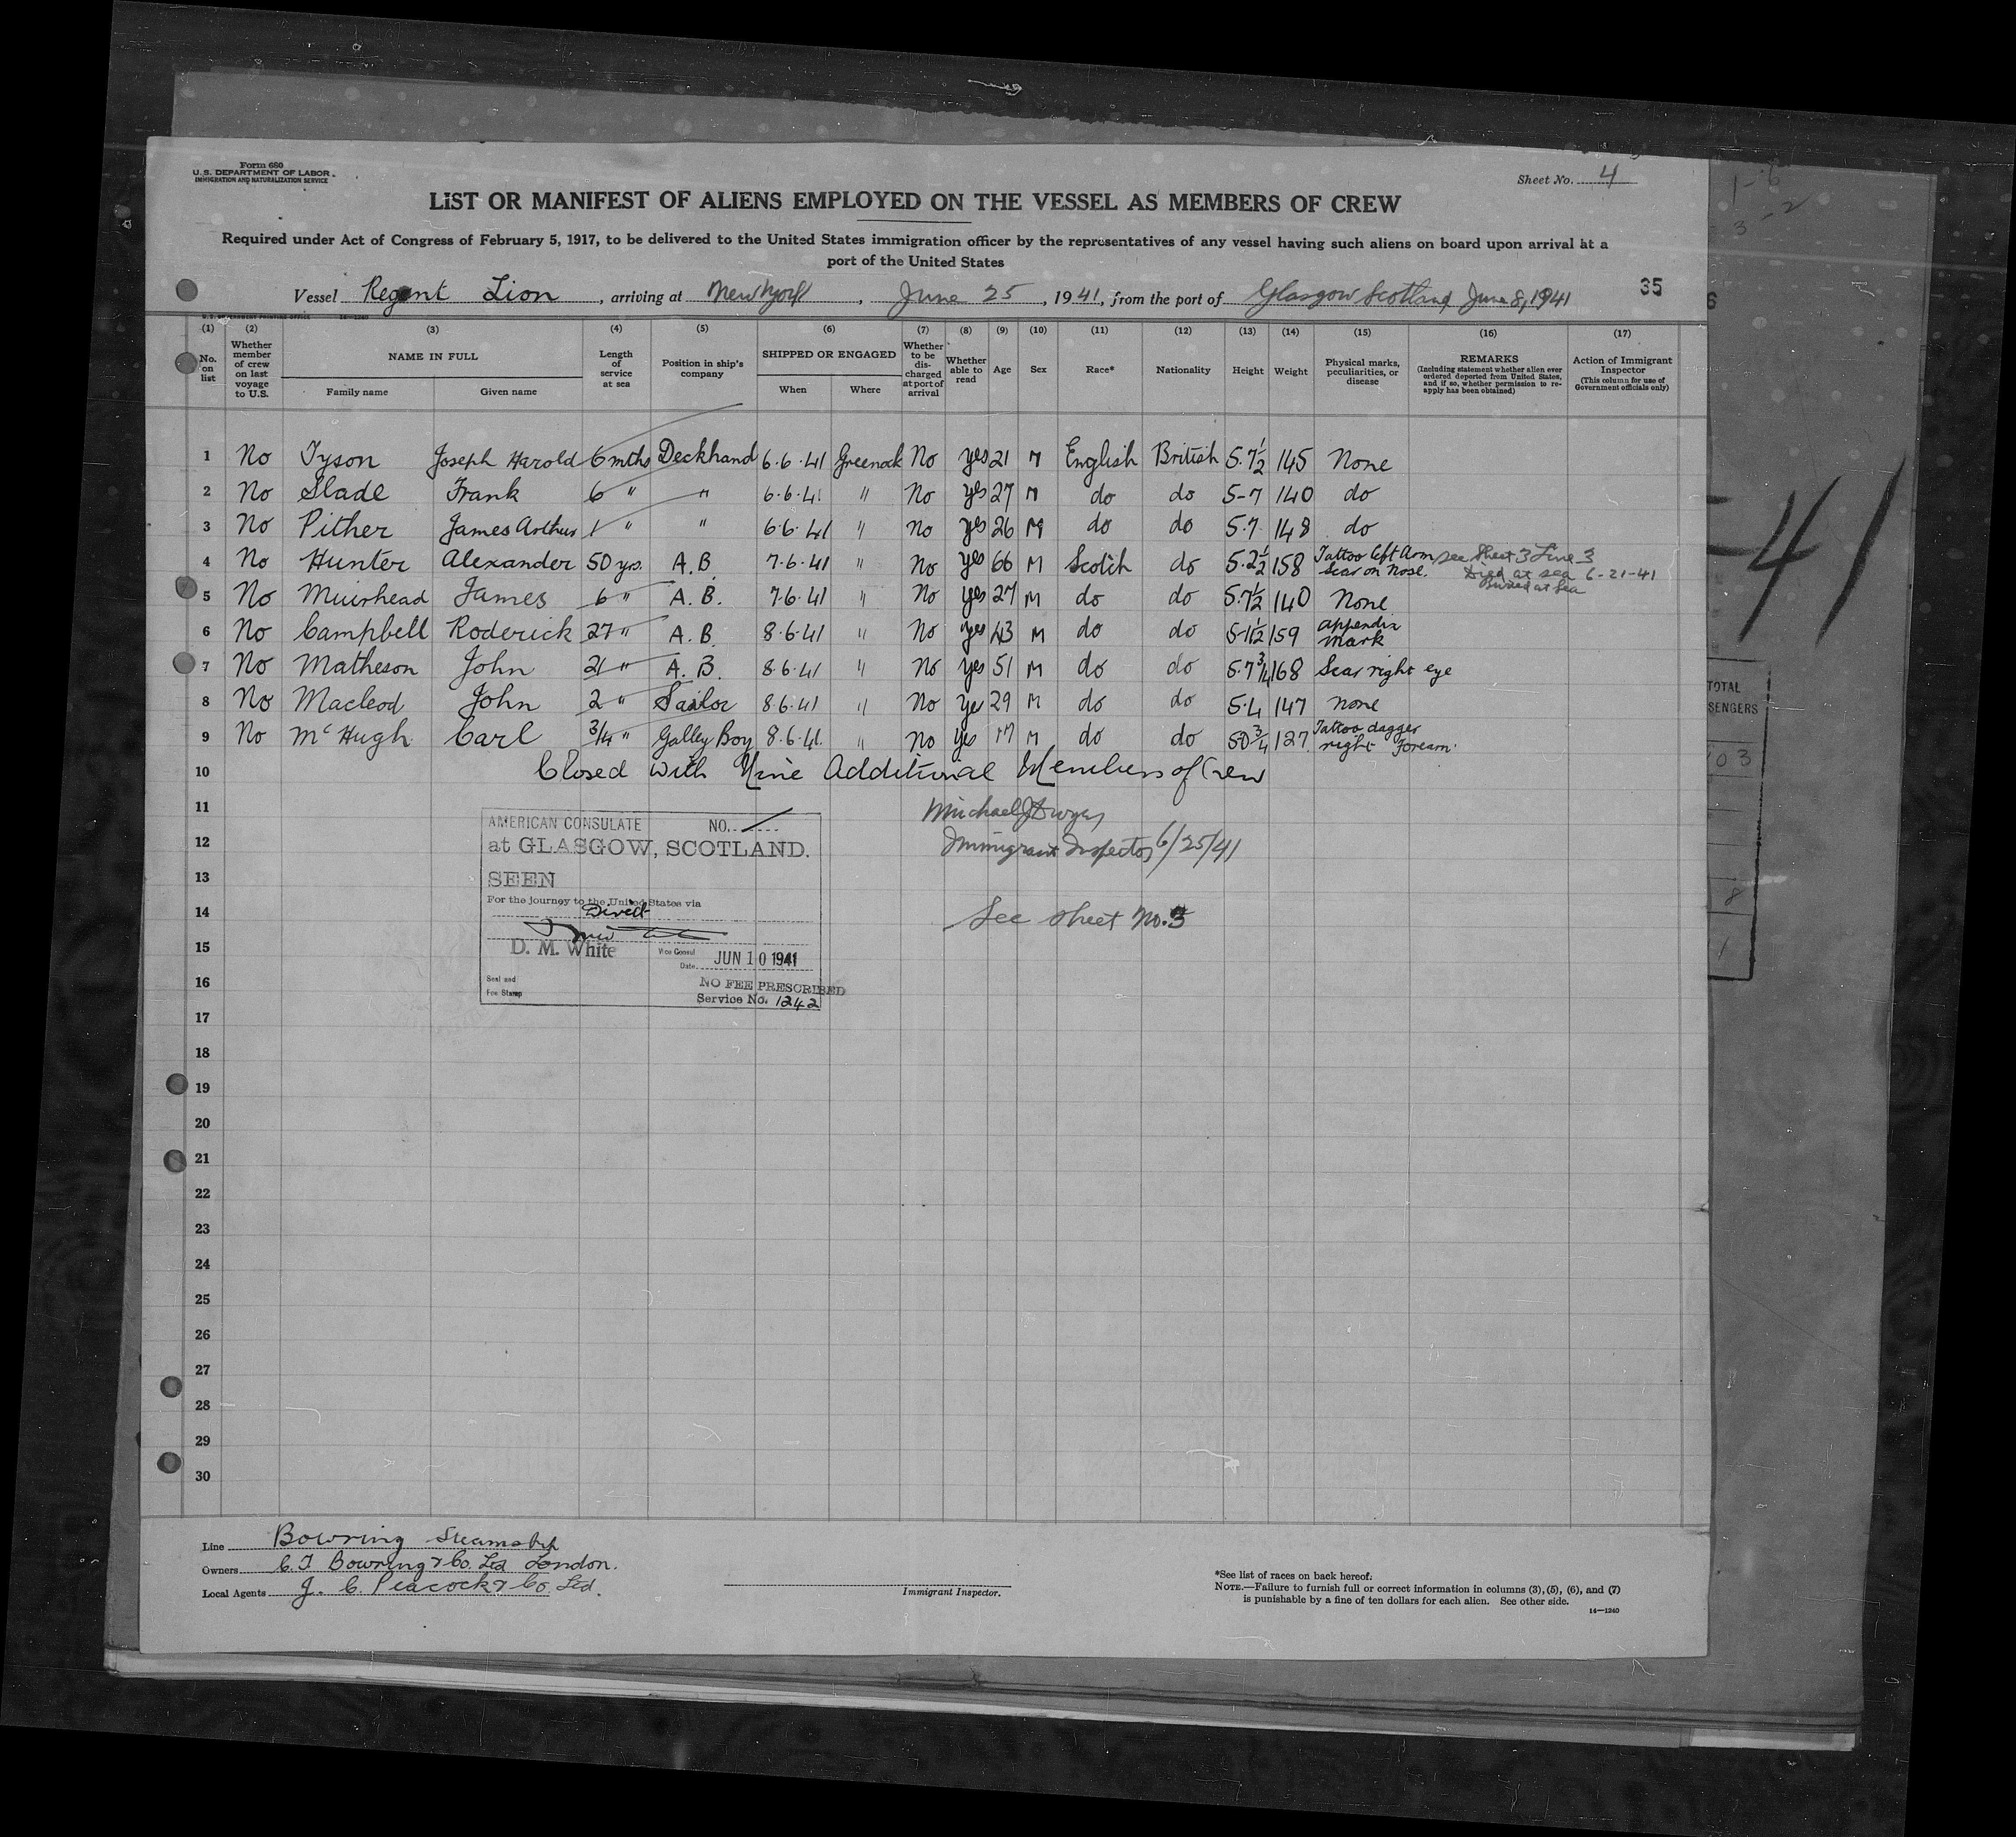 Form 680
U.S. DEPARTMENT OF LABOR
IMMIGRATION AND NATURALIZATION SERVICE
Sheet No. 4
LIST OR MANIFEST OF ALIENS EMPLOYED ON THE VESSEL AS MEMBERS OF CREW
Required under Act of Congress of February 5, 1917, to be delivered to the United States immigration officer by the representatives of any vessel having such aliens on board upon arrival at a
port of the United States
Vessel Regent Lion, arriving at New York, June 25, 1941, from the port of Glasgow Scotland June 8, 1941 35
(1) (2) (3) (4) (5) (6) (7) (8) (9) (10) (11) (12) (13) (14) (15) (16) (17)
No. on list
Whether member of crew on last voyage to U.S.
NAME IN FULL
Family name
Given name
Length of service at sea
Position in ship's company
SHIPPED OR ENGAGED
When
Where
Whether to be discharged at port of arrival
Whether able to read
Age
Sex
Race*
Nationality
Height
Weight
Physical marks, peculiarities, or disease
REMARKS
(Including statement whether alien ever ordered deported from United States, and if so, whether permission to reapply has been obtained)
Action of Immigrant Inspector
(This column for use of Government officials only)
1 No Tyson Joseph Harold 6 mths Deckhand 6.6.41 Greenock No yes 21 M English British 5.7½ 145 None
2 No Slade Frank 6 " " 6.6.41 " No yes 27 M do do 5-7 140 do
3 No Pither James Arthur 1 " " 6.6.41 " No yes 26 M do do 5.7 148 do
4 No Hunter Alexander 50 yrs. A.B. 7.6.41 " No yes 66 M Scotch do 5.2½ 158 Tattoo left Arm Scar on Nose. See Sheet 3 Line 3
Died at sea 6-21-41
Buried at Sea
5 No Muirhead James 6 " A.B. 7.6.41 " No yes 27 M do do 5.7½ 140 None
6 No Campbell Roderick 27 " A.B. 8.6.41 " No yes 43 M do do 159 appendix mark
7 No Matheson John 21 " A.B. 8.6.41 " No yes 51 M do do 5.7¾ 168 Scar right eye
8 No Macleod John 2 " Sailor 8.6.41 " No Yes 29 M do do 5.4 147 none
9 No McHugh Carl 3/4 " Galley Boy 8.6.41. " No yes 17 M do do 127 Tattoo dagger right Forearm.
10 Closed with Nine Additional Members of Crew
11 Michael J Dwyer
12 Immigrant Inspector 6/25/41
13
14 See sheet No. 3
15
16
17
18
19
20
21
22
23
24
25
26
27
28
29
30
AMERICAN CONSULATE NO.
at GLASGOW, SCOTLAND.
SEEN
For the journey to the United States via
Direct
D. M. White Vice Consul
Date JUN 10 1941
Seal and
Fee Stamp
NO FEE PRESCRIBED
Service No. 1242
Line Bowring Steamship
Owners C.T. Bowring & Co. Ltd London.
Local Agents J. C. Peacock & Co. Ltd.
Immigrant Inspector.
*See list of races on back hereof.
NOTE.—Failure to furnish full or correct information in columns (3), (5), (6), and (7)
is punishable by a fine of ten dollars for each alien. See other side.
14—1240
-41
TOTAL